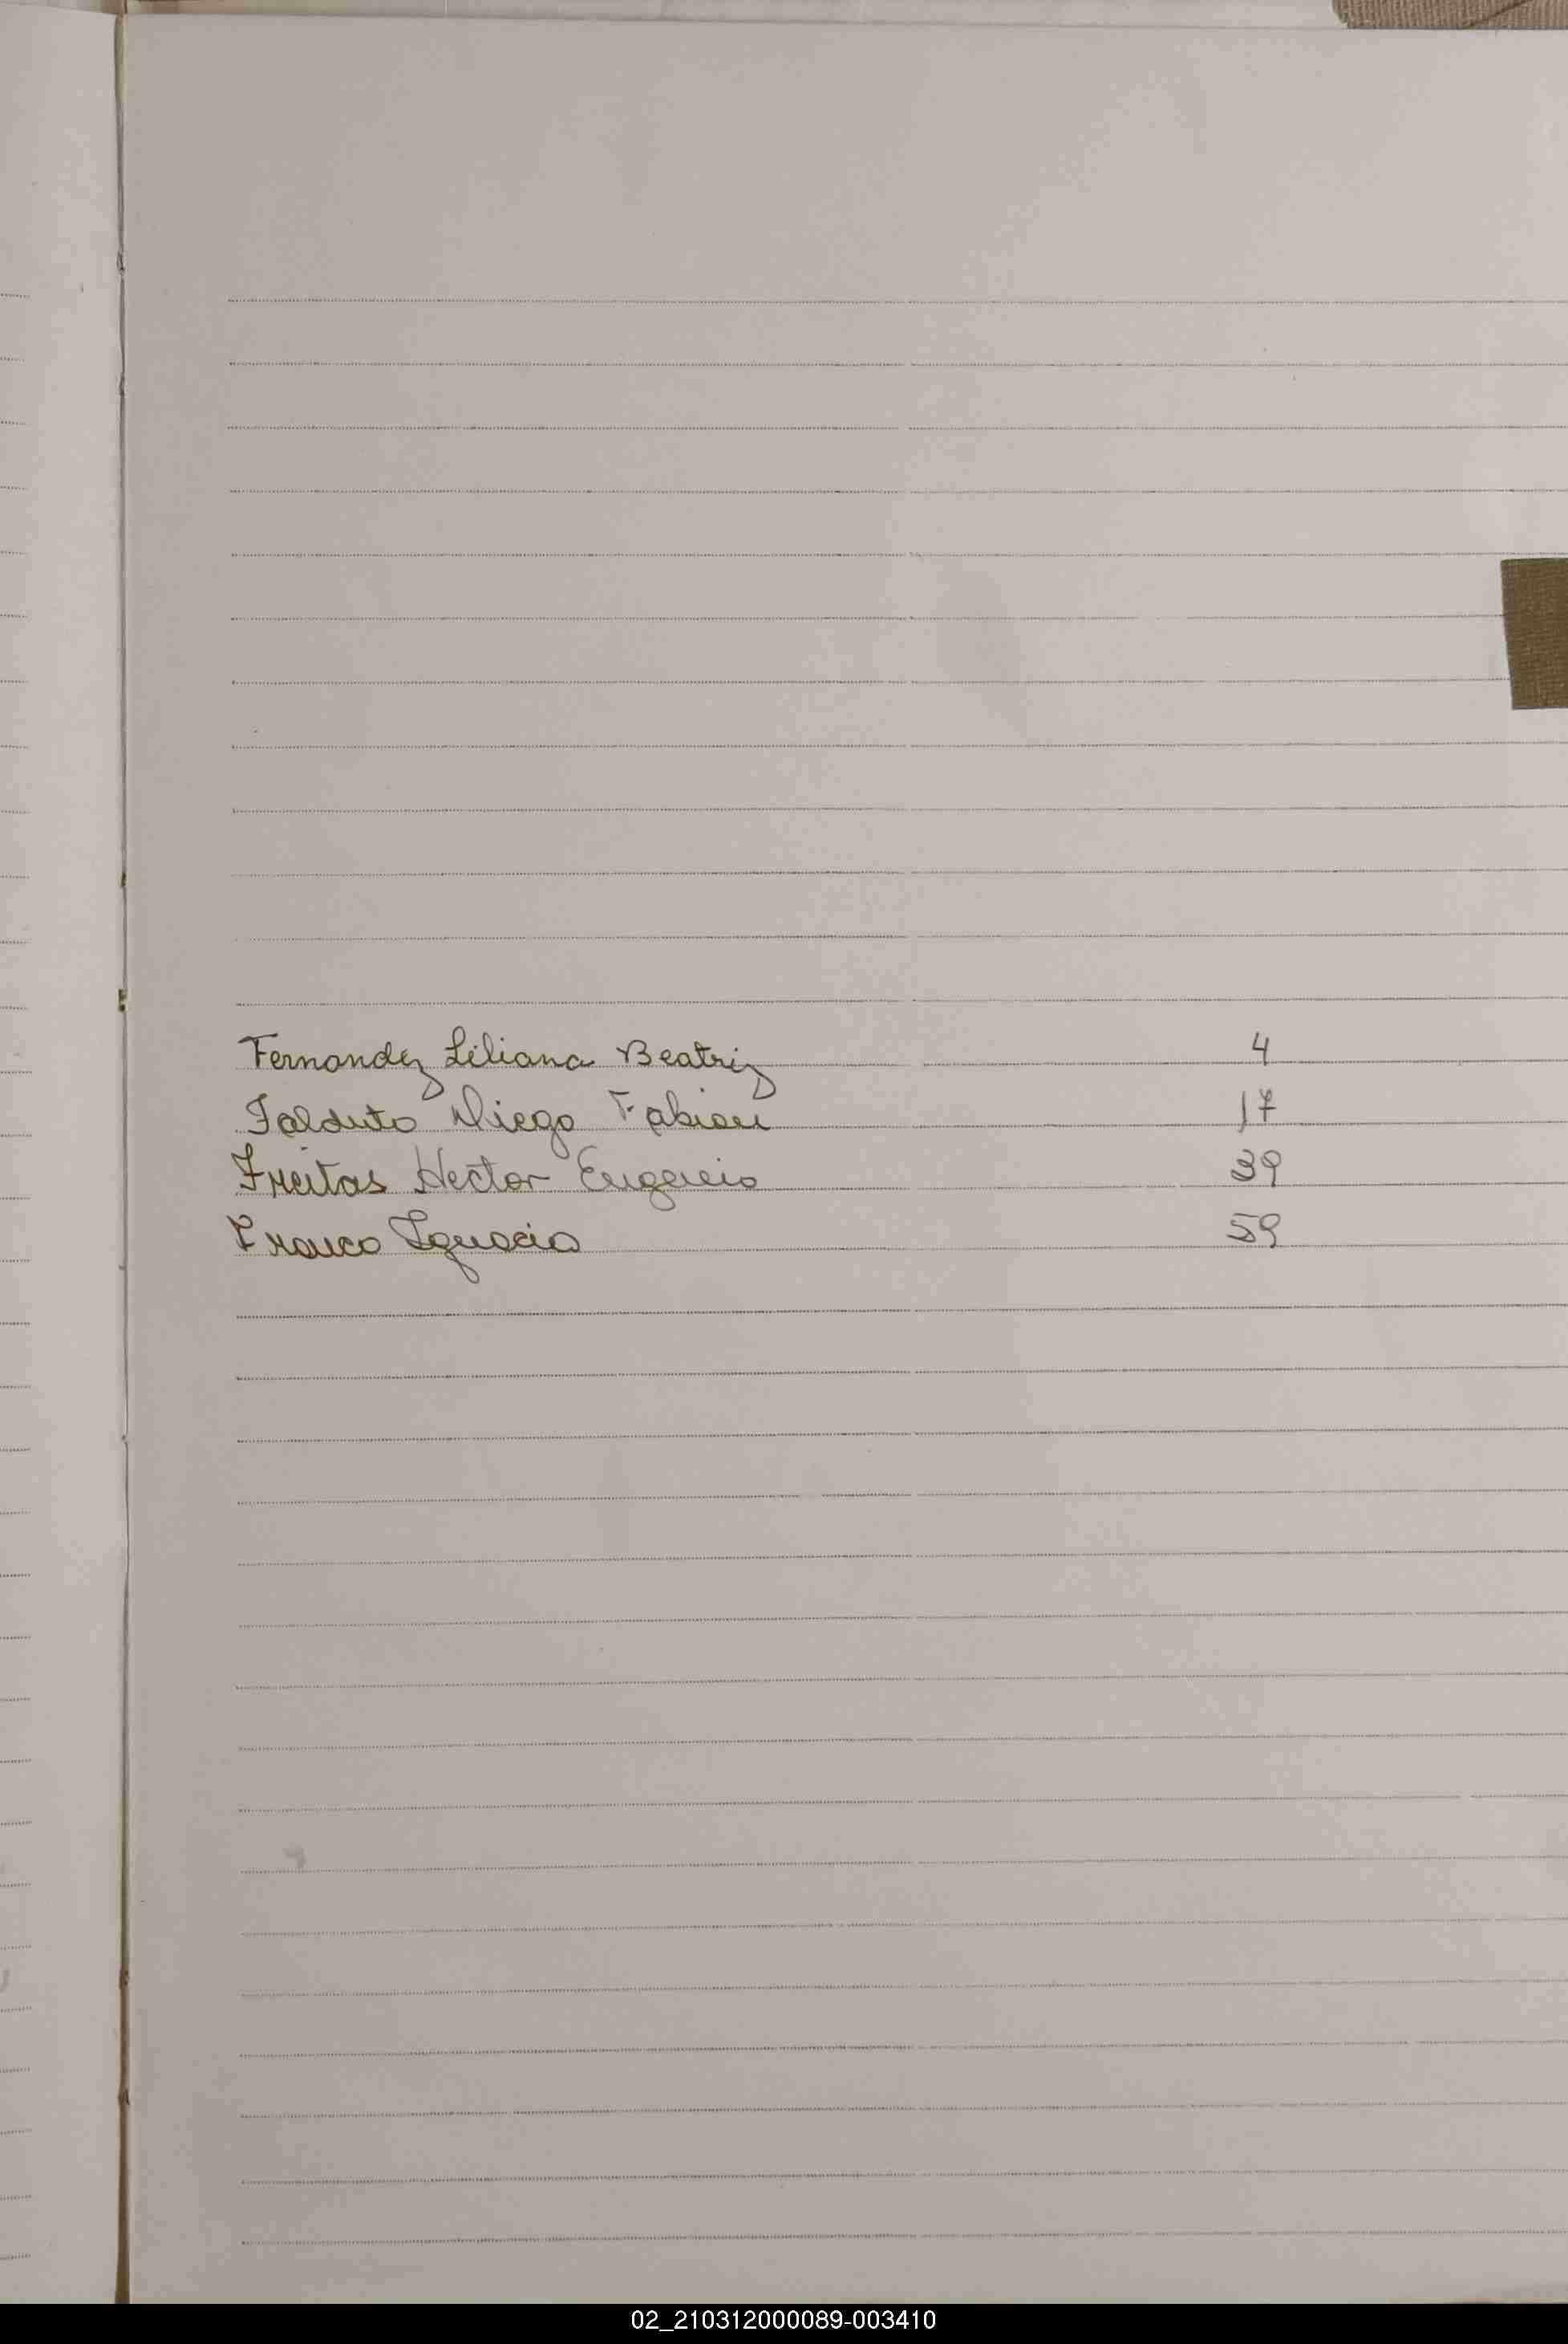 Fernandez Liliana Beatriz 4
Falduto Diego Fabian 17
Freitas Hector Eugenio 39
Franco Ignacio 59
02_210312000089-003410